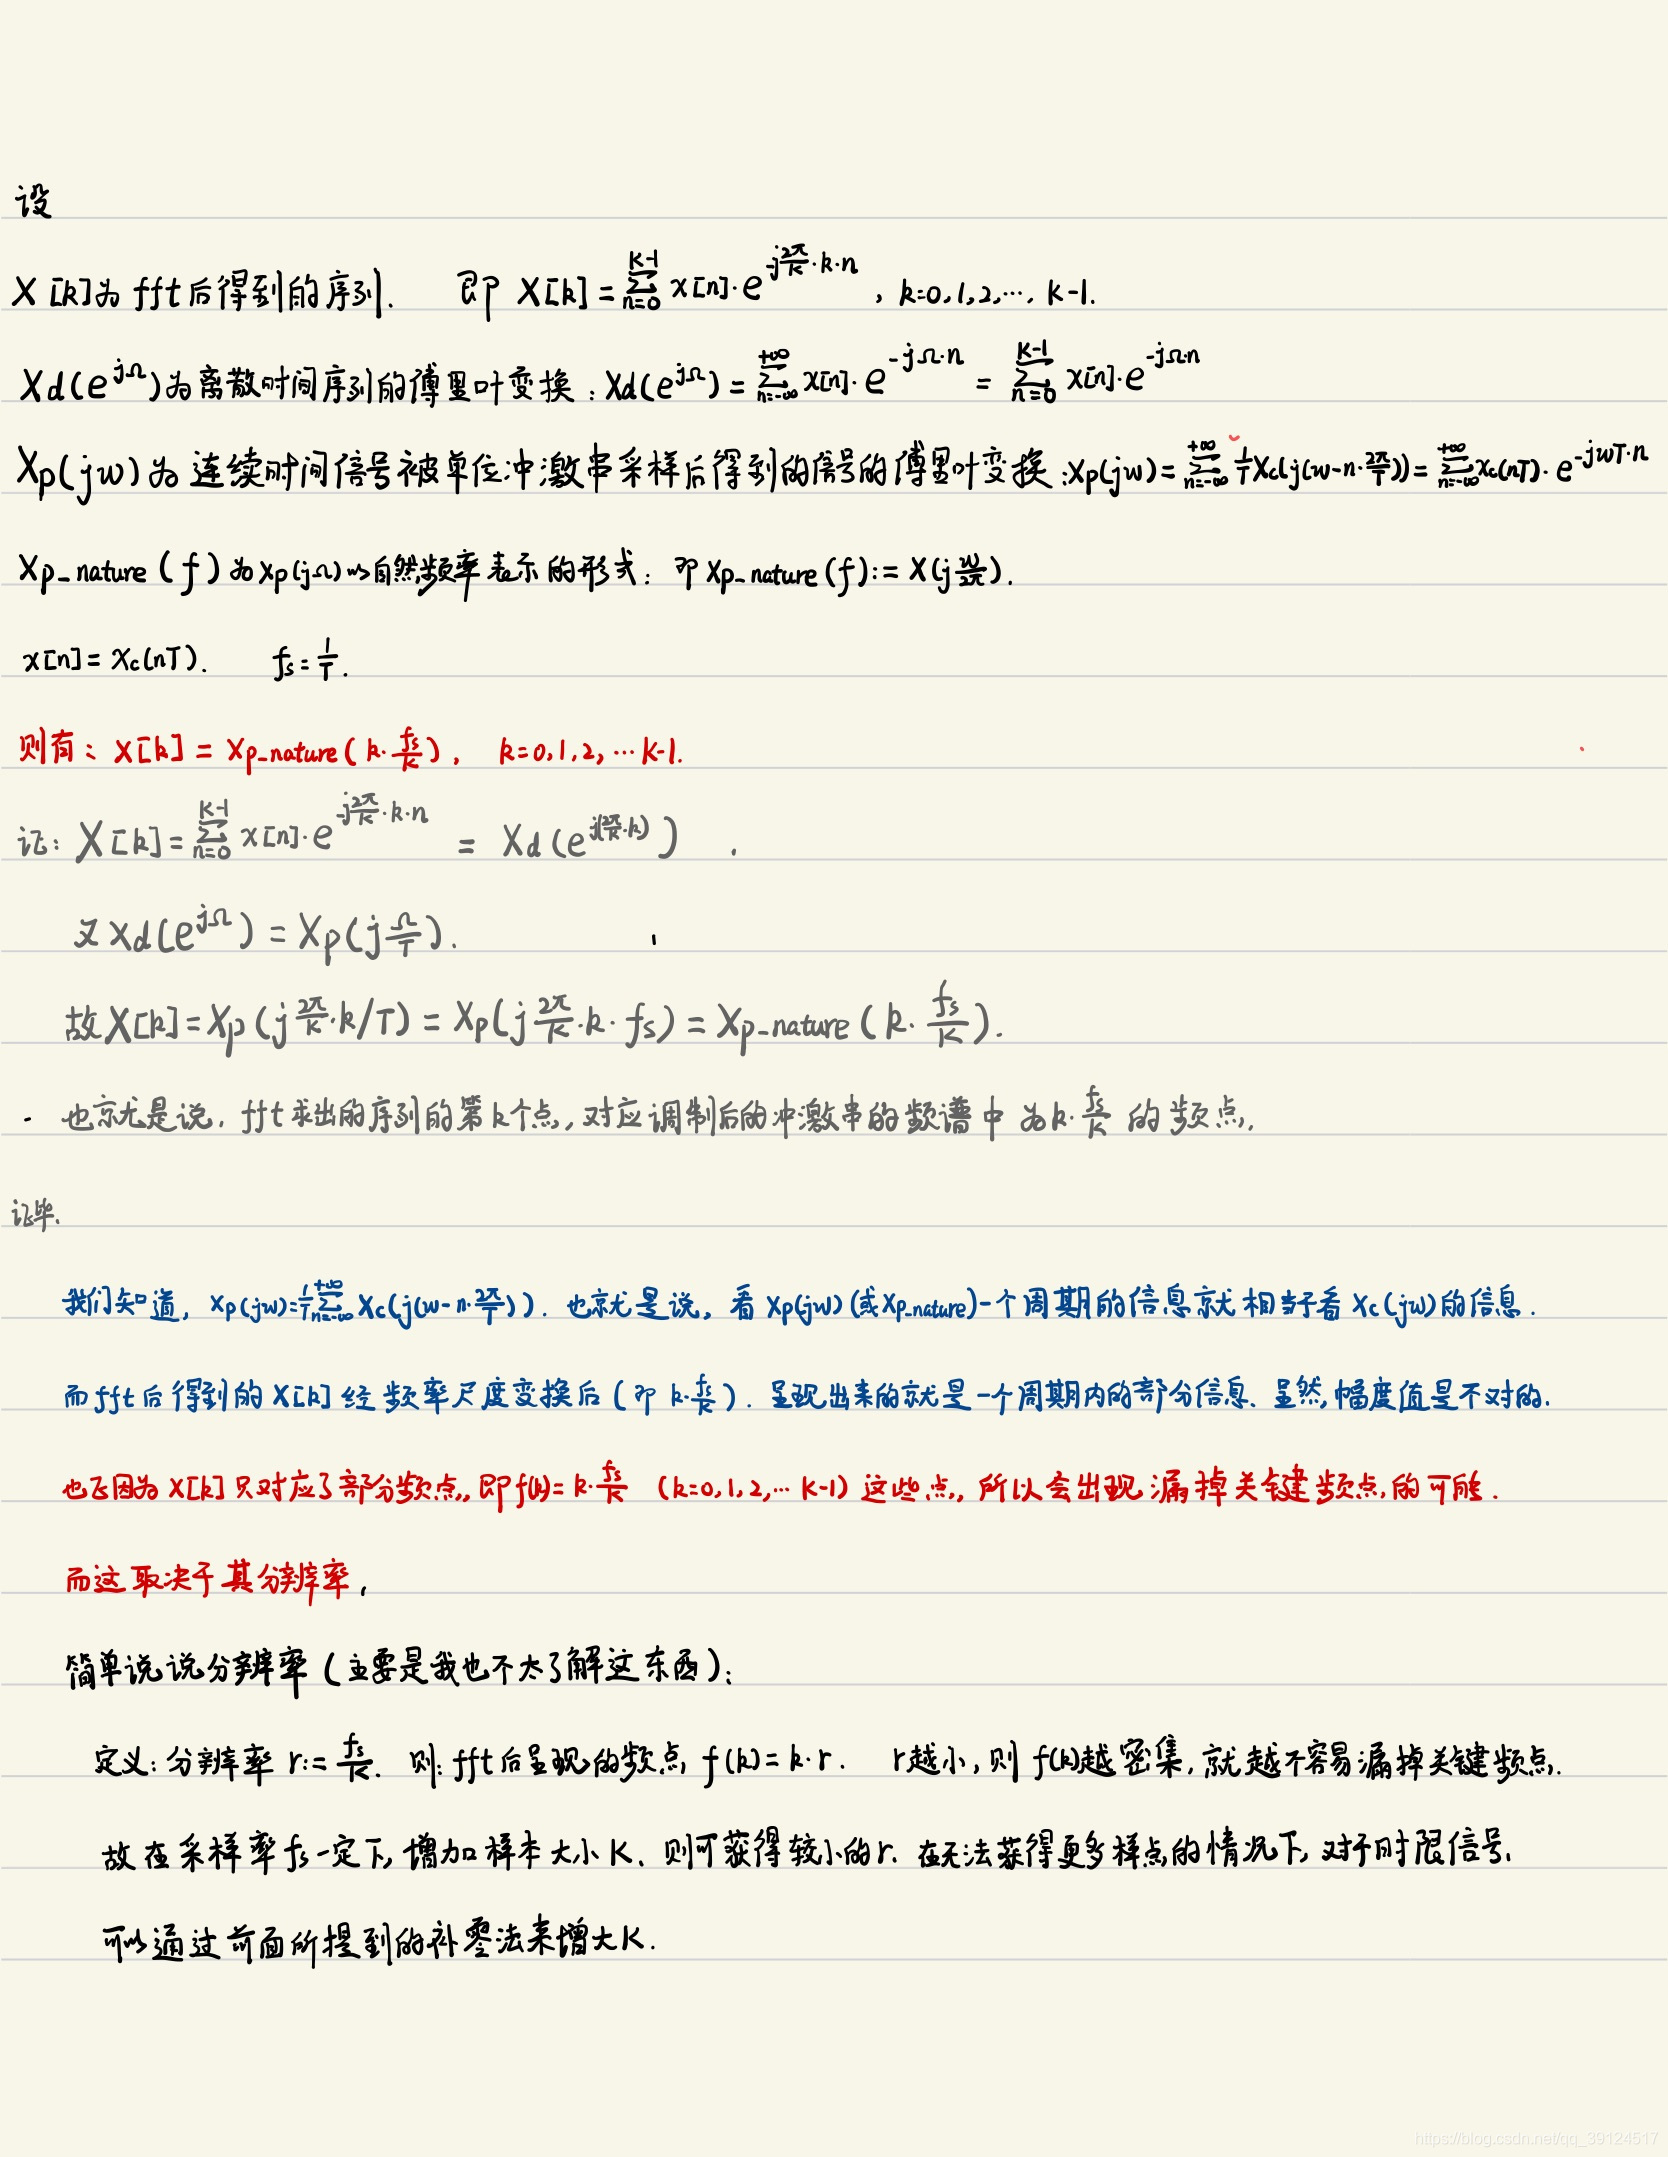 设
X[k]为fft后得到的序列. 即 X[k]=∑_{n=0}^{K-1} x[n]·e^{-j\frac{2π}{K}·k·n}, k=0,1,2,…, K-1.
Xd(e^{jΩ})为离散时间序列的傅里叶变换:Xd(e^{jΩ})=∑_{n=-∞}^{+∞} x[n]·e^{-jΩ·n} = ∑_{n=0}^{K-1} x[n]·e^{-jΩ·n}
Xp(jω)为连续时间信号被单位冲激串采样后得到的信号的傅里叶变换:Xp(jω)=∑_{n=-∞}^{+∞} \frac{1}{T}Xc(j(ω-n·\frac{2π}{T}))=∑_{n=-∞}^{+∞} xc(nT)·e^{-jωT·n}
Xp_nature(f)为Xp(jΩ)以自然频率表示的形式: 即 Xp_nature(f):=X(j\frac{ω}{2π}).
x[n]=xc(nT). fs=\frac{1}{T}.
则有: X[k]=Xp_nature(k·\frac{fs}{K}), k=0,1,2,…K-1.
证: X[k]=∑_{n=0}^{K-1} x[n]·e^{-j\frac{2π}{K}·k·n} = Xd(e^{j(\frac{2π}{K}·k)}) .
又Xd(e^{jΩ})=Xp(j\frac{Ω}{T}).
故X[k]=Xp(j\frac{2π}{K}·k/T)=Xp(j\frac{2π}{K}·k·fs)=Xp_nature(k·\frac{fs}{K}).
也就是说, fft求出的序列的第k个点,对应调制后的冲激串的频谱中为k·\frac{fs}{K}的频点.
证毕.
我们知道, Xp(jω)=\frac{1}{T}∑_{n=-∞}^{+∞} Xc(j(ω-n·\frac{2π}{T})). 也就是说, 看Xp(jω)(或Xp_nature)一个周期的信息就相当于看Xc(jω)的信息.
而fft后得到的X[k]经频率尺度变换后(即k·\frac{fs}{K}). 呈现出来的就是一个周期内的部分信息. 显然,幅度值是不对的.
也正因为X[k]只对应了部分频点,即f(k)=k·\frac{fs}{K} (k=0,1,2,…K-1)这些点,所以会出现漏掉关键频点的可能.
而这取决于其分辨率,
简单说说分辨率(主要是我也不太了解这东西):
定义:分辨率 r:=\frac{fs}{K}. 则:fft后呈现的频点f(k)=k·r. r越小,则f(k)越密集,就越不容易漏掉关键频点.
故在采样率fs一定下,增加样本大小K、则可获得较小的r. 在无法获得更多样点的情况下,对于时限信号,
可以通过前面所提到的补零法来增大K.
https://blog.csdn.net/qq_39124517